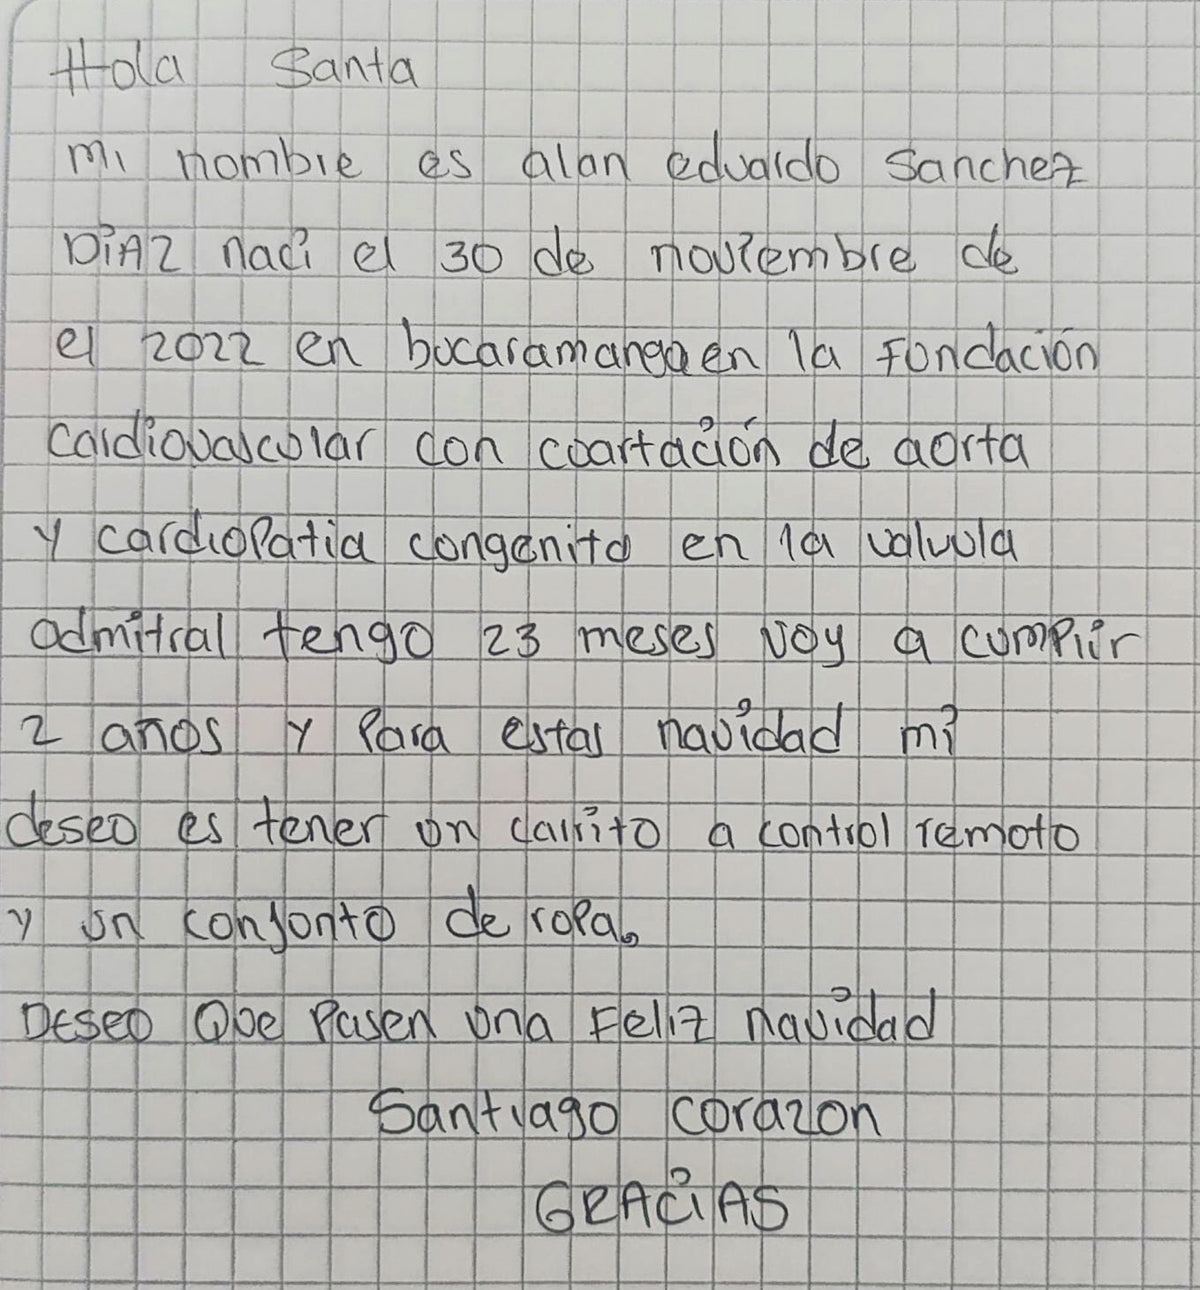 Hola Santa
mi nombre es alan eduardo Sanchez
DiAz naci el 30 de noviembre de
el 2022 en bucaramanga en la Fundación
cardiovascular con coartación de aorta
y cardiopatia congenita en la valvula
admitral tengo 23 meses voy a cumplir
2 años y Para estas navidad mi
deseo es tener un carrito a control remoto
y un conjunto de ropa.
DESEO Que Pasen una Feliz navidad
Santiago corazon
GRACiAS